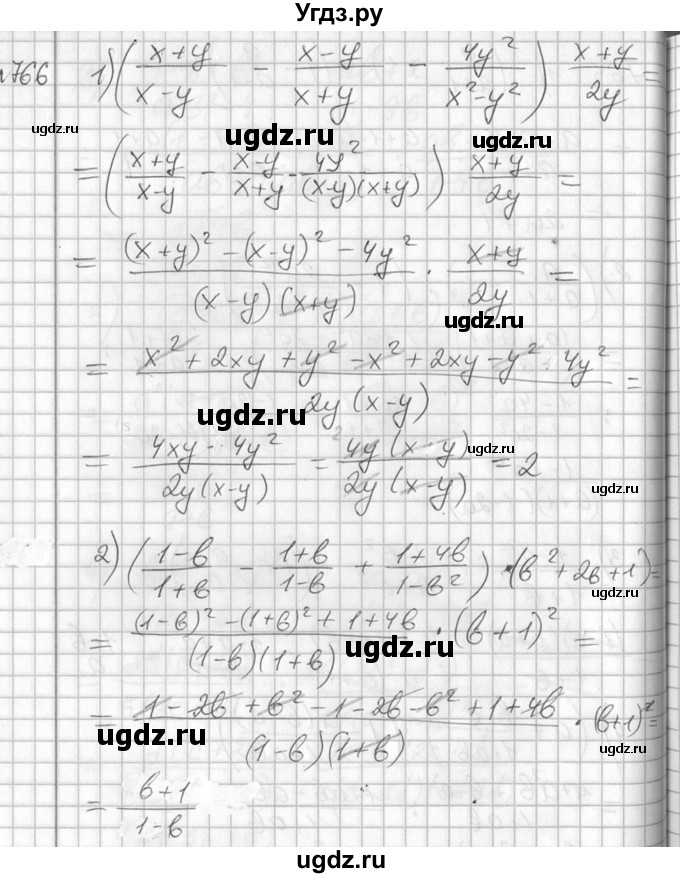 Угдз.ру
№766 1) ( (x+y)/(x-y) - (x-y)/(x+y) - 4y²/(x²-y²) ) (x+y)/2y =
ugdz.ru
ugdz.ru
ugdz.ru
= ( (x+y)/(x-y) - (x-y)/(x+y) - 4y²/((x-y)(x+y)) ) (x+y)/2y =
= ((x+y)² - (x-y)² - 4y²)/((x-y)(x+y)) · (x+y)/2y =
ugdz.ru
= (x² + 2xy + y² - x² + 2xy - y² 4y²)/(2y(x-y)) =
ugdz.ru
= (4xy - 4y²)/(2y(x-y)) = ² 4y(x-y)/(2y(x-y)) = 2
ugdz.ru
ugdz.ru
2) ( (1-в)/(1+в) - (1+в)/(1-в) + (1+4в)/(1-в²) ) · (в²+2в+1) =
ugdz.ru
= ((1-в)² - (1+в)² + 1+4в)/((1-в)(1+в)) · (в+1)² =
ugdz.ru
= (1 - 2в + в² - 1 - 2в - в² + 1 + 4в)/((1-в)(1+в)) · (в+1)² =
ugdz.ru
ugdz.ru
= (в+1)/(1-в)
ugdz.ru